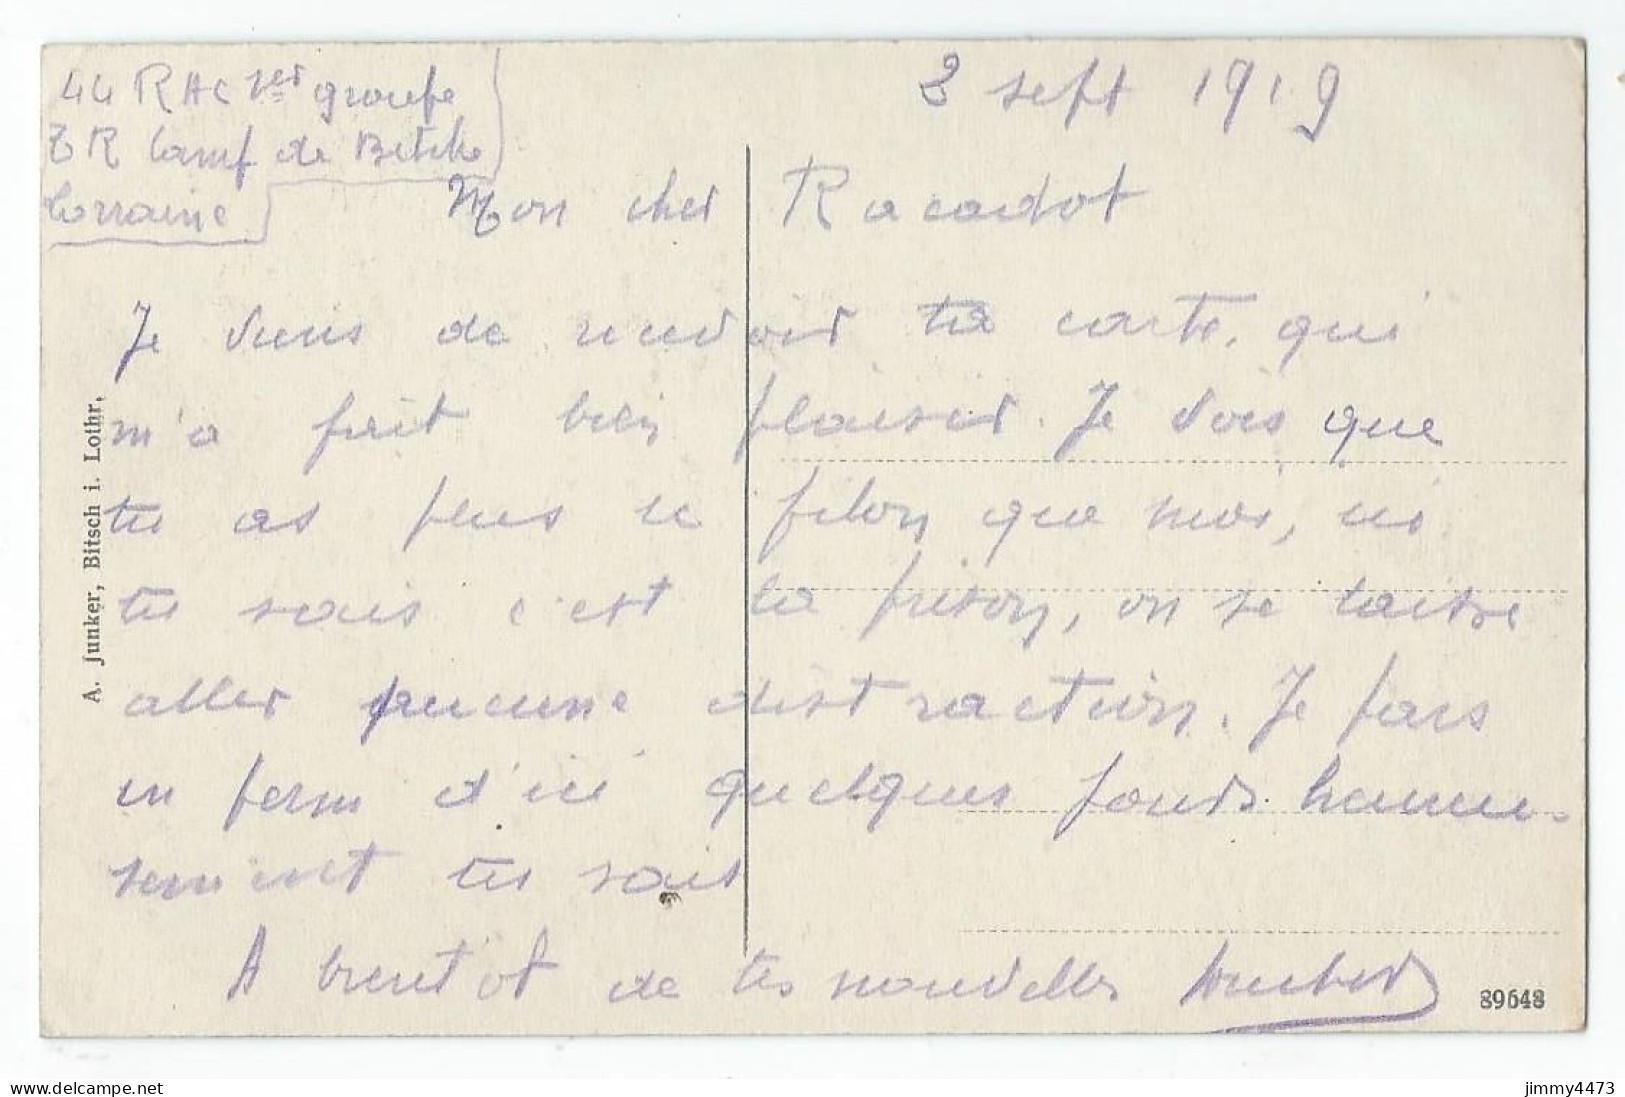 44 RAC 1er groupe
ZR Camp de Bitche
Lorraine
3 sept 1919
Mon cher Racadot
Je viens de recevoir ta carte, qui
m'a fait bien plaisir. Je vois que
tu as plus le filon que moi, ici
tu sais c'est la prison, on se laisse
aller aucune distraction. Je pars
en perm d'ici quelques jours heureu-
sement tu sais
A bientôt de tes nouvelles Humbert
A. Junker, Bitsch i. Lothr.
89648
delcampe.net
jimmy4473